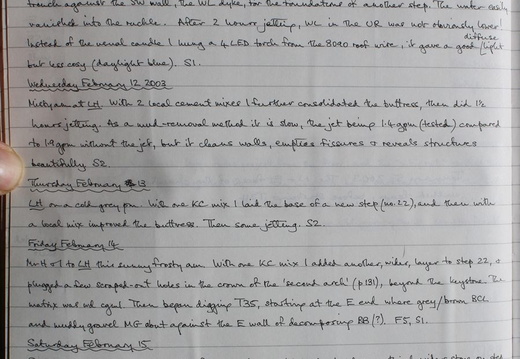 trench against the SW wall, the WC dyke, for the foundations of another step. The water easily
vanished into the rubble. After 2 hours jetting, WC in the OR was not obviously lower!
Instead of the usual candle I hung a 4 LED torch from the 8020 roof wire, it gave a good diffuse light
but less cosy (daylight blue). S1.
Wednesday February 12 2003
Misty am at LH. With 2 local cement mixes I further consolidated the buttress, then did 1½
hours jetting. As a mud-removal method it is slow, the jet being 1.4 gpm (tested) compared
to 1.9 gpm without the jet, but it cleans walls, empties fissures & reveals structures
beautifully. S2.
Thursday February 13
LH on a cold grey pm. With one KC mix I laid the base of a new step (no. 22), and then with
a local mix improved the buttress. Then some jetting. S2.
Friday February 14
Mr H & I to LH this sunny frosty am. With one KC mix I added another, wider, layer to step 22, &
plugged a few scraped-out holes in the crown of the 'second arch' (p131), beyond the keystone. The
matrix was wd cgul. Then began digging T35, starting at the E end where grey/brown BCL
and muddy gravel MG abut against the E wall of decomposing BB (?). F5, S1.
Saturday February 15